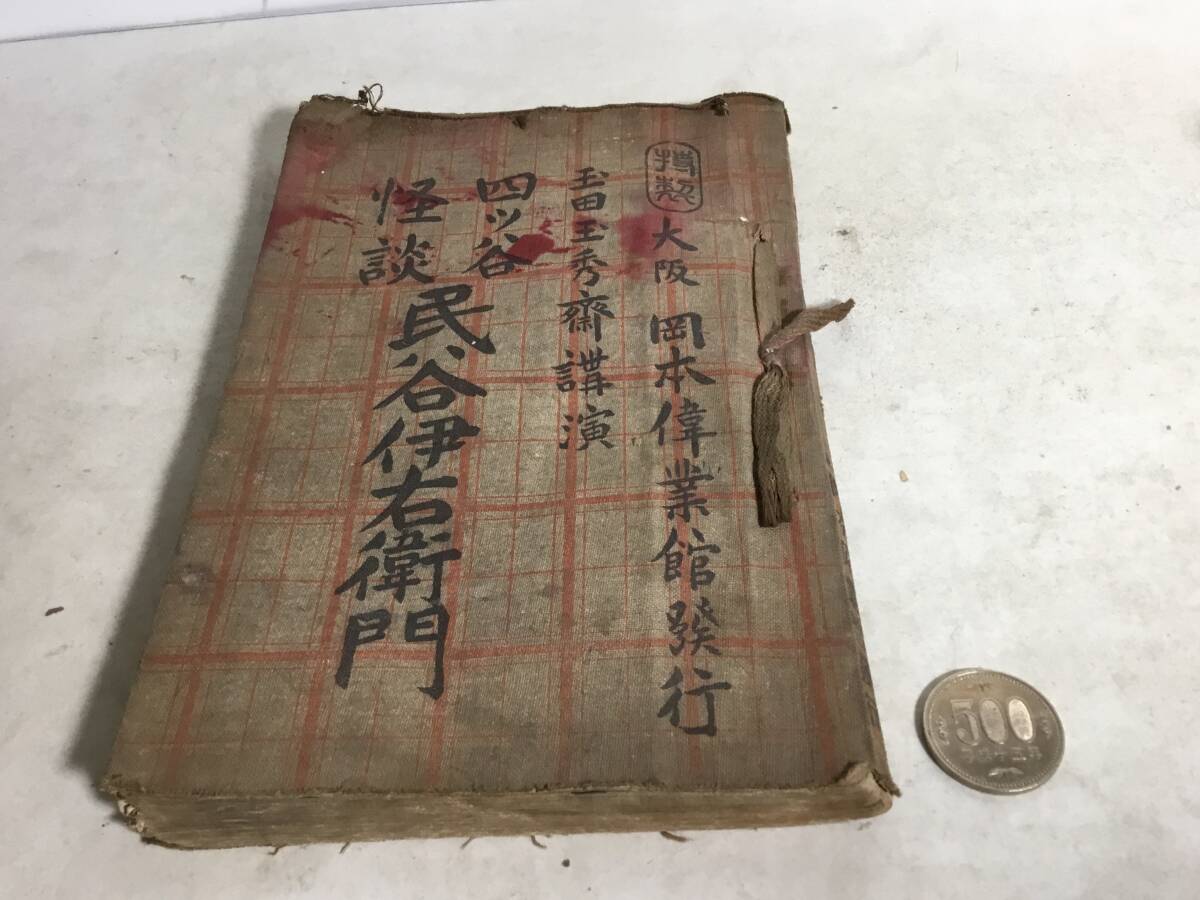 特製
大阪 岡本偉業館發行
玉田玉秀齋講演
四ツ谷
怪談
民谷伊右衛門
500